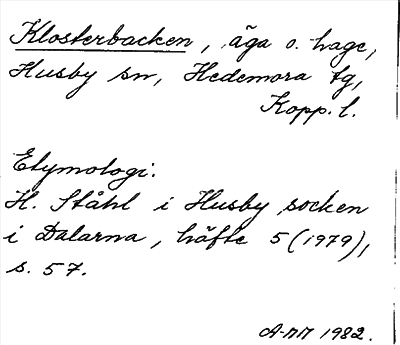 Klosterbacken, äga o. hage,
Husby sn, Hedemora tg,
Kopp. l.
Etymologi:
H. Ståhl i Husby socken
i Dalarna, häfte 5 (1979),
s. 57.
A-MM 1982.